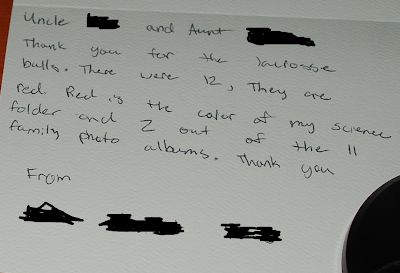 Uncle and Aunt
Thank you for the lacrosse
balls. There were 12, They are
red Red is the color of my science
folder and 2 out of the 11
family photo albums. Thank you
From